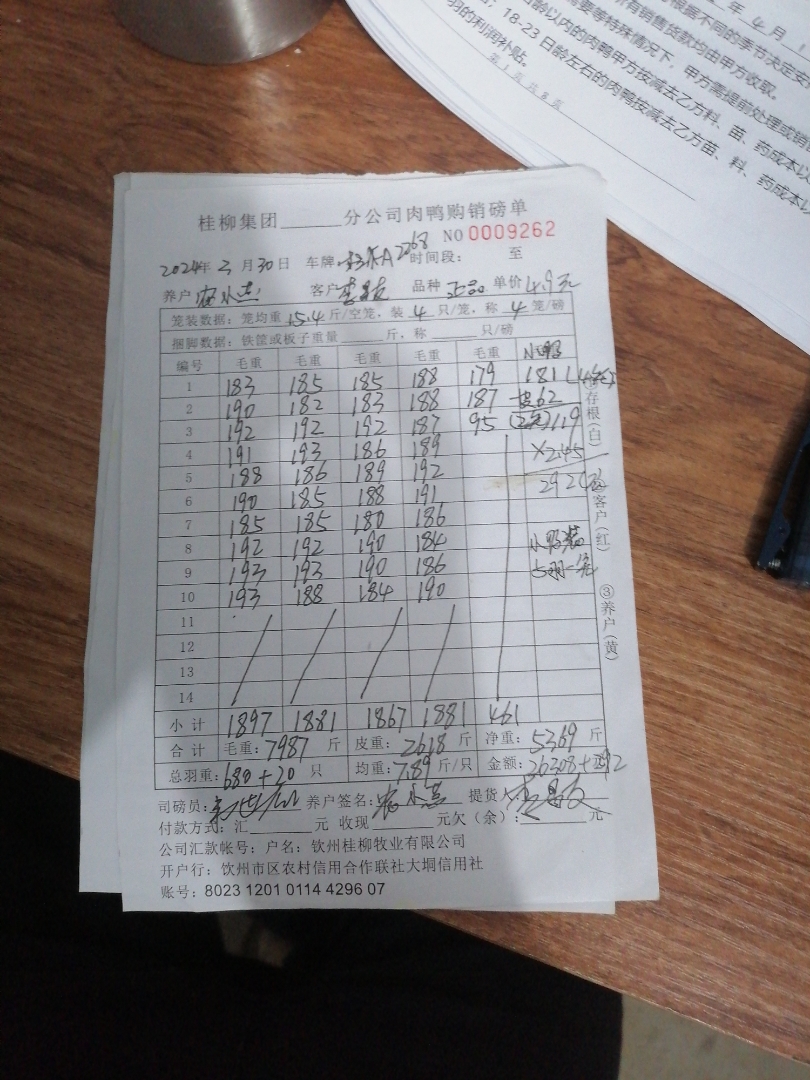 年 4 月 1
根据不同的季节决定安
所有销售货款均由甲方收取。
要等特殊情况下，甲方需提前处理或销售
日龄以内的肉鸭甲方按减去乙方料、苗、药成本以
；18-23 日龄左右的肉鸭按减去乙方苗、料、药成本以
羽的利润补贴。
第 1 页 共 8 页
桂柳集团______分公司肉鸭购销磅单
NO 0009262
2024年 3 月 30 日 车牌: A2768 时间段: 至
养户 客户 品种 正品 单价 4.9元
笼装数据：笼均重 15.4 斤/空笼，装 4 只/笼，称 4 笼/磅
捆脚数据：铁筐或板子重量______斤，称______只/磅
编号 毛重 毛重 毛重 毛重 毛重 小鸭
1 183 185 185 188 179 181 (4笼)
2 190 182 183 188 187 皮62
3 192 192 192 187 95 119
4 191 193 186 189 ×2.45
5 188 186 189 192 292
6 190 185 188 191
7 185 185 180 186
8 192 192 190 184 小鸭装
9 193 193 190 186 5羽一笼
10 193 188 184 190
11
12
13
14
小计 1897 1881 1867 1881 461
合计 毛重: 7987 斤 皮重: 2618 斤 净重: 5369 斤
总羽重: 680+20 只 均重: 7.89 斤/只 金额: 26308+292
司磅员: 养户签名: 提货人
付款方式：汇______元 收现______元欠（余）:______元
公司汇款帐号；户名：钦州桂柳牧业有限公司
开户行：钦州市区农村信用合作联社大垌信用社
账号：8023 1201 0114 4296 07
①存根(白)
②客户(红)
③养户(黄)